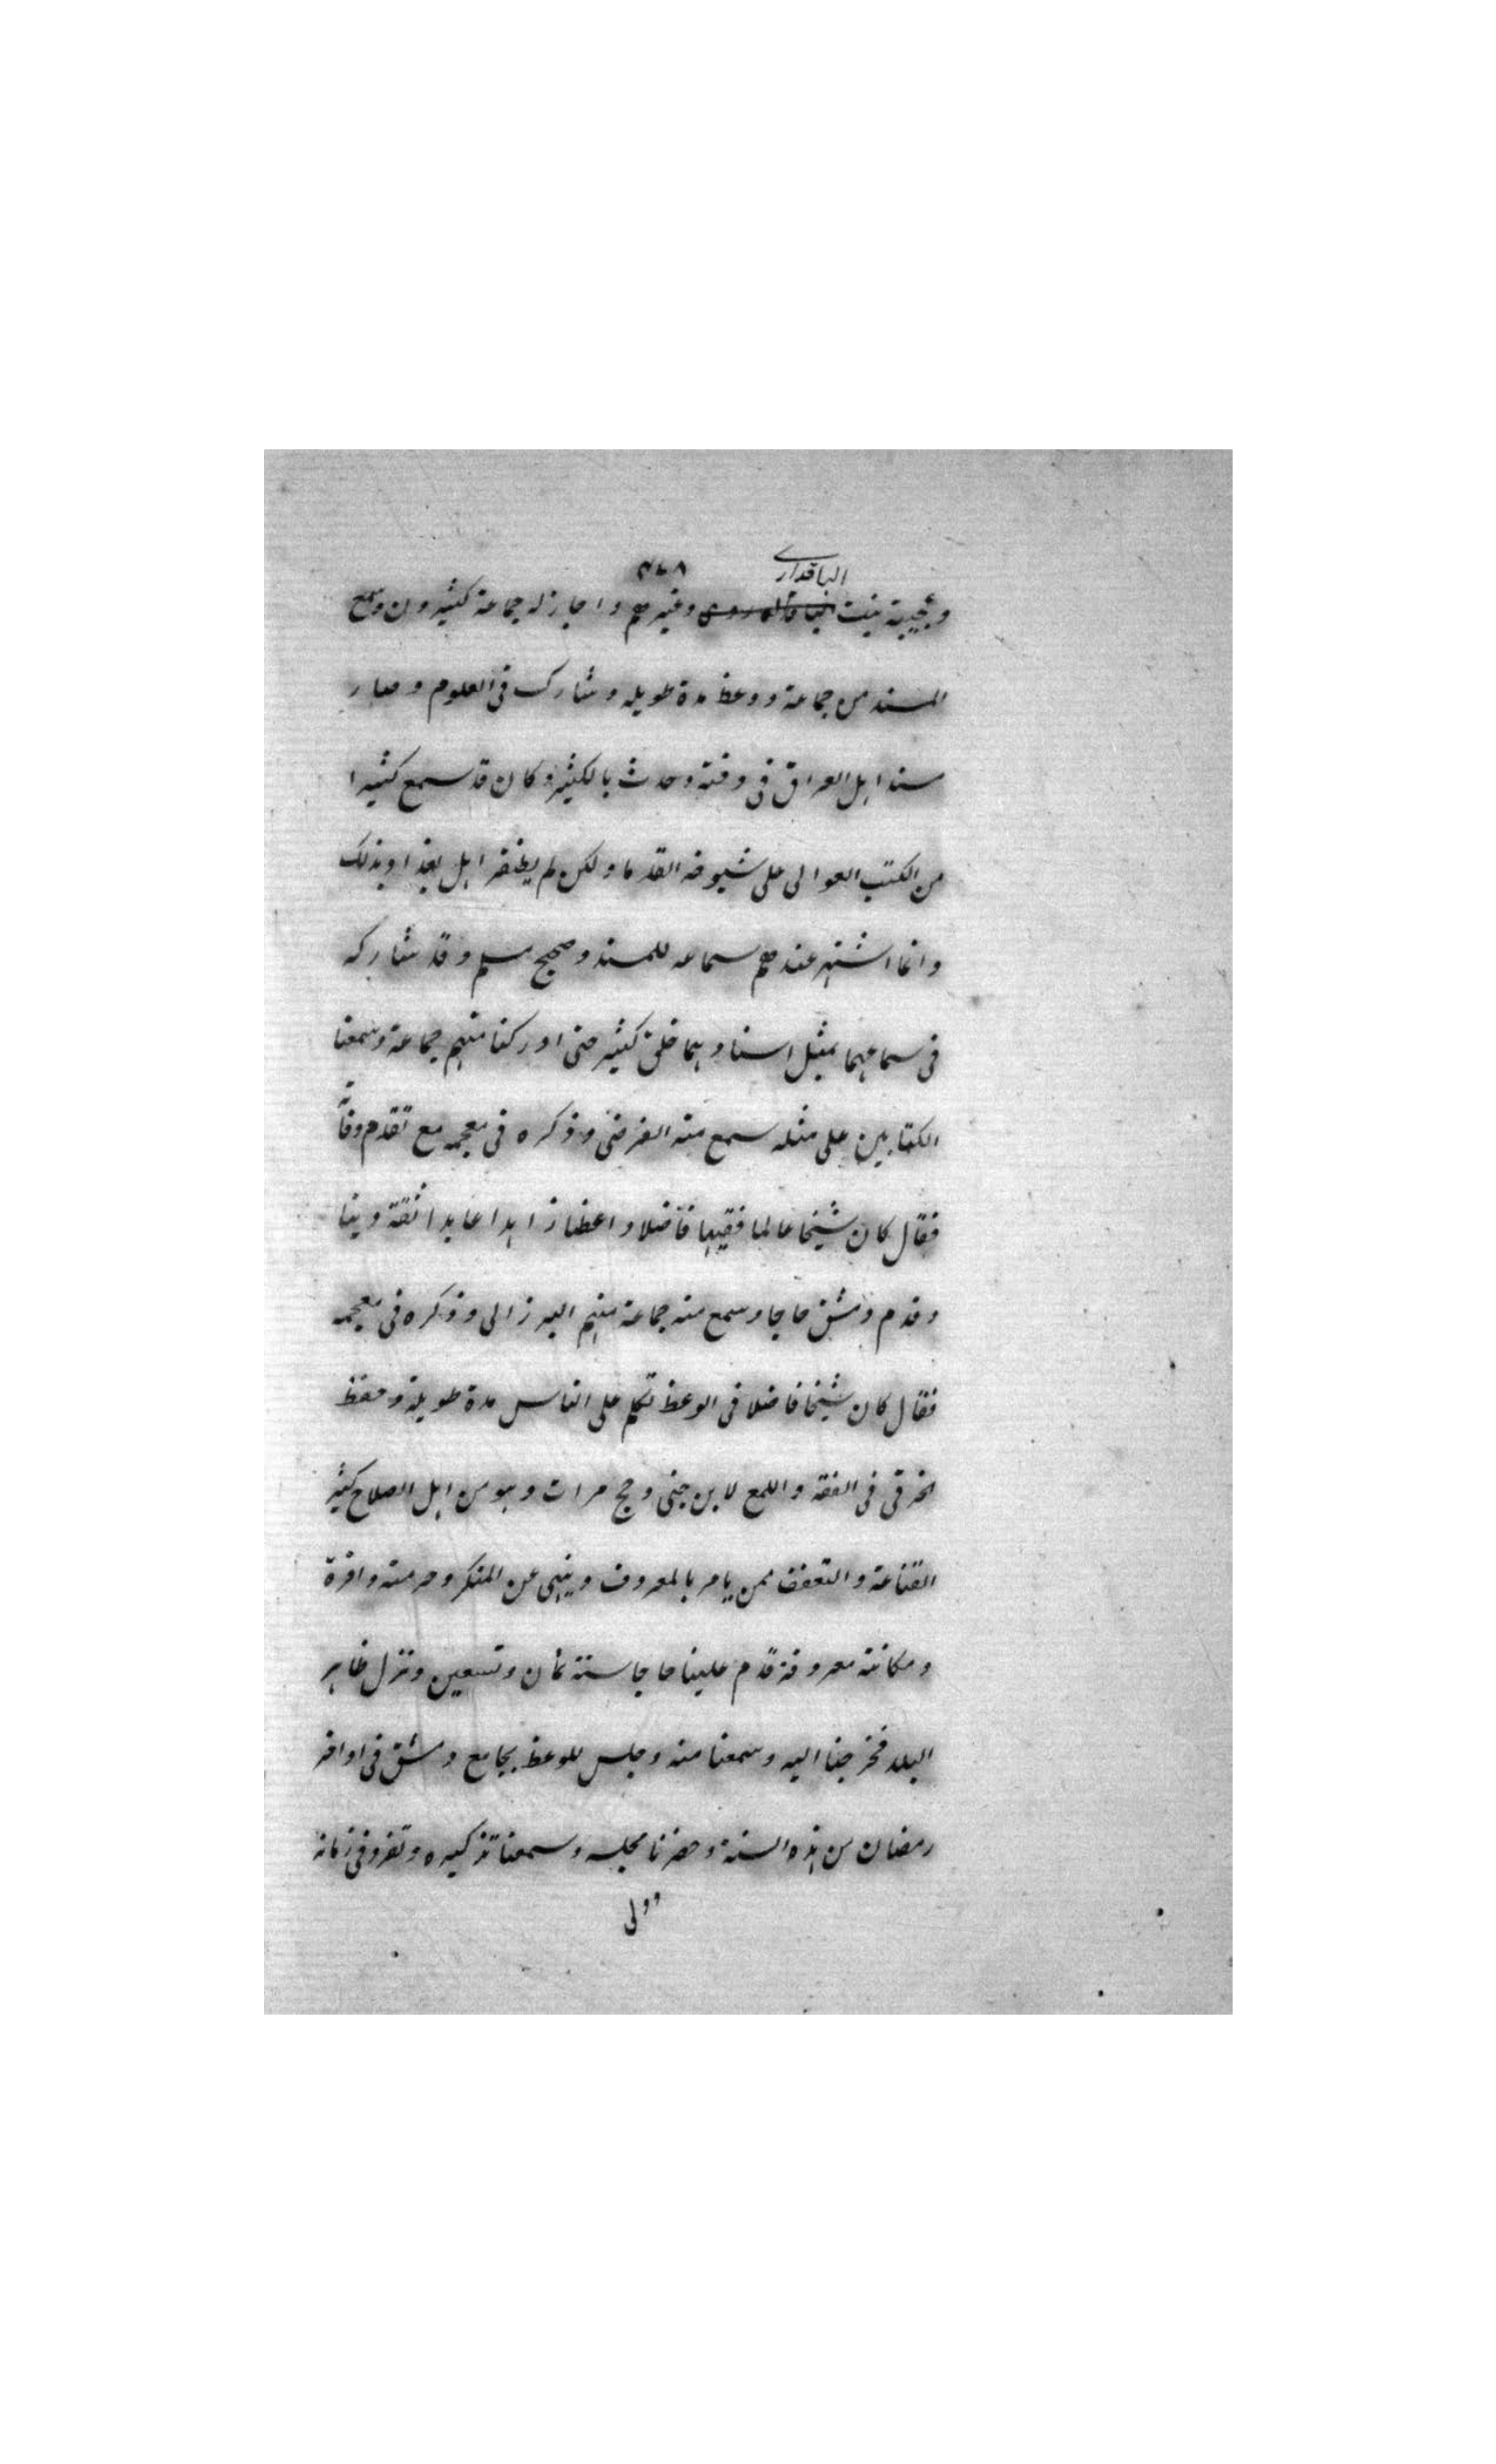 الباقداري
٣٤٨
وعجيبة بنت وغيرهم واجاز له جماعة كثيرون وسمع
المسند من جماعة ووعظ مدة طويله وشارك فى العلوم وصار
مسند اهل العراق فى وقته وحدث بالكثير وكان قد سمع كثيرا
من الكتب العوالى على شيوخه القدما ولكن لم يظفر اهل بغداد بذلك
وانما اشتهر عندهم سماعه للمسند وصحيح مسلم وقد شاركه
فى سماعهما بمثل اسنادهما خلق كثير حتى ادركنا منهم جماعة وسمعنا
الكتابين على مثله سمع منه الفرضى وذكره فى معجمه مع تقدم وفاته
فقال كان شيخا عالما فقيها فاضلا واعظا زاهدا عابدا ثقة دينا
وقدم دمشق حاجا وسمع منه جماعة منهم البرزالى وذكره فى معجمه
فقال كان شيخا فاضلا فى الوعظ تكلم على الناس مدة طويلة وحفظ
الخرقى فى الفقه واللمع لابن جنى وحج مرات وهو من اهل الصلاح كثير
القناعة والتعفف ممن يامر بالمعروف وينهى عن المنكر وحرمته وافرة
ومكانته معروفة قدم علينا حاجا سنة ثمان وتسعين ونزل ظاهر
البلد فخرجنا اليه وسمعنا منه وجلس للوعظ بجامع دمشق فى اواخر
رمضان من هذه السنة وحضرنا مجلسه وسمعنا تذكيره وتفرد فى زمانه